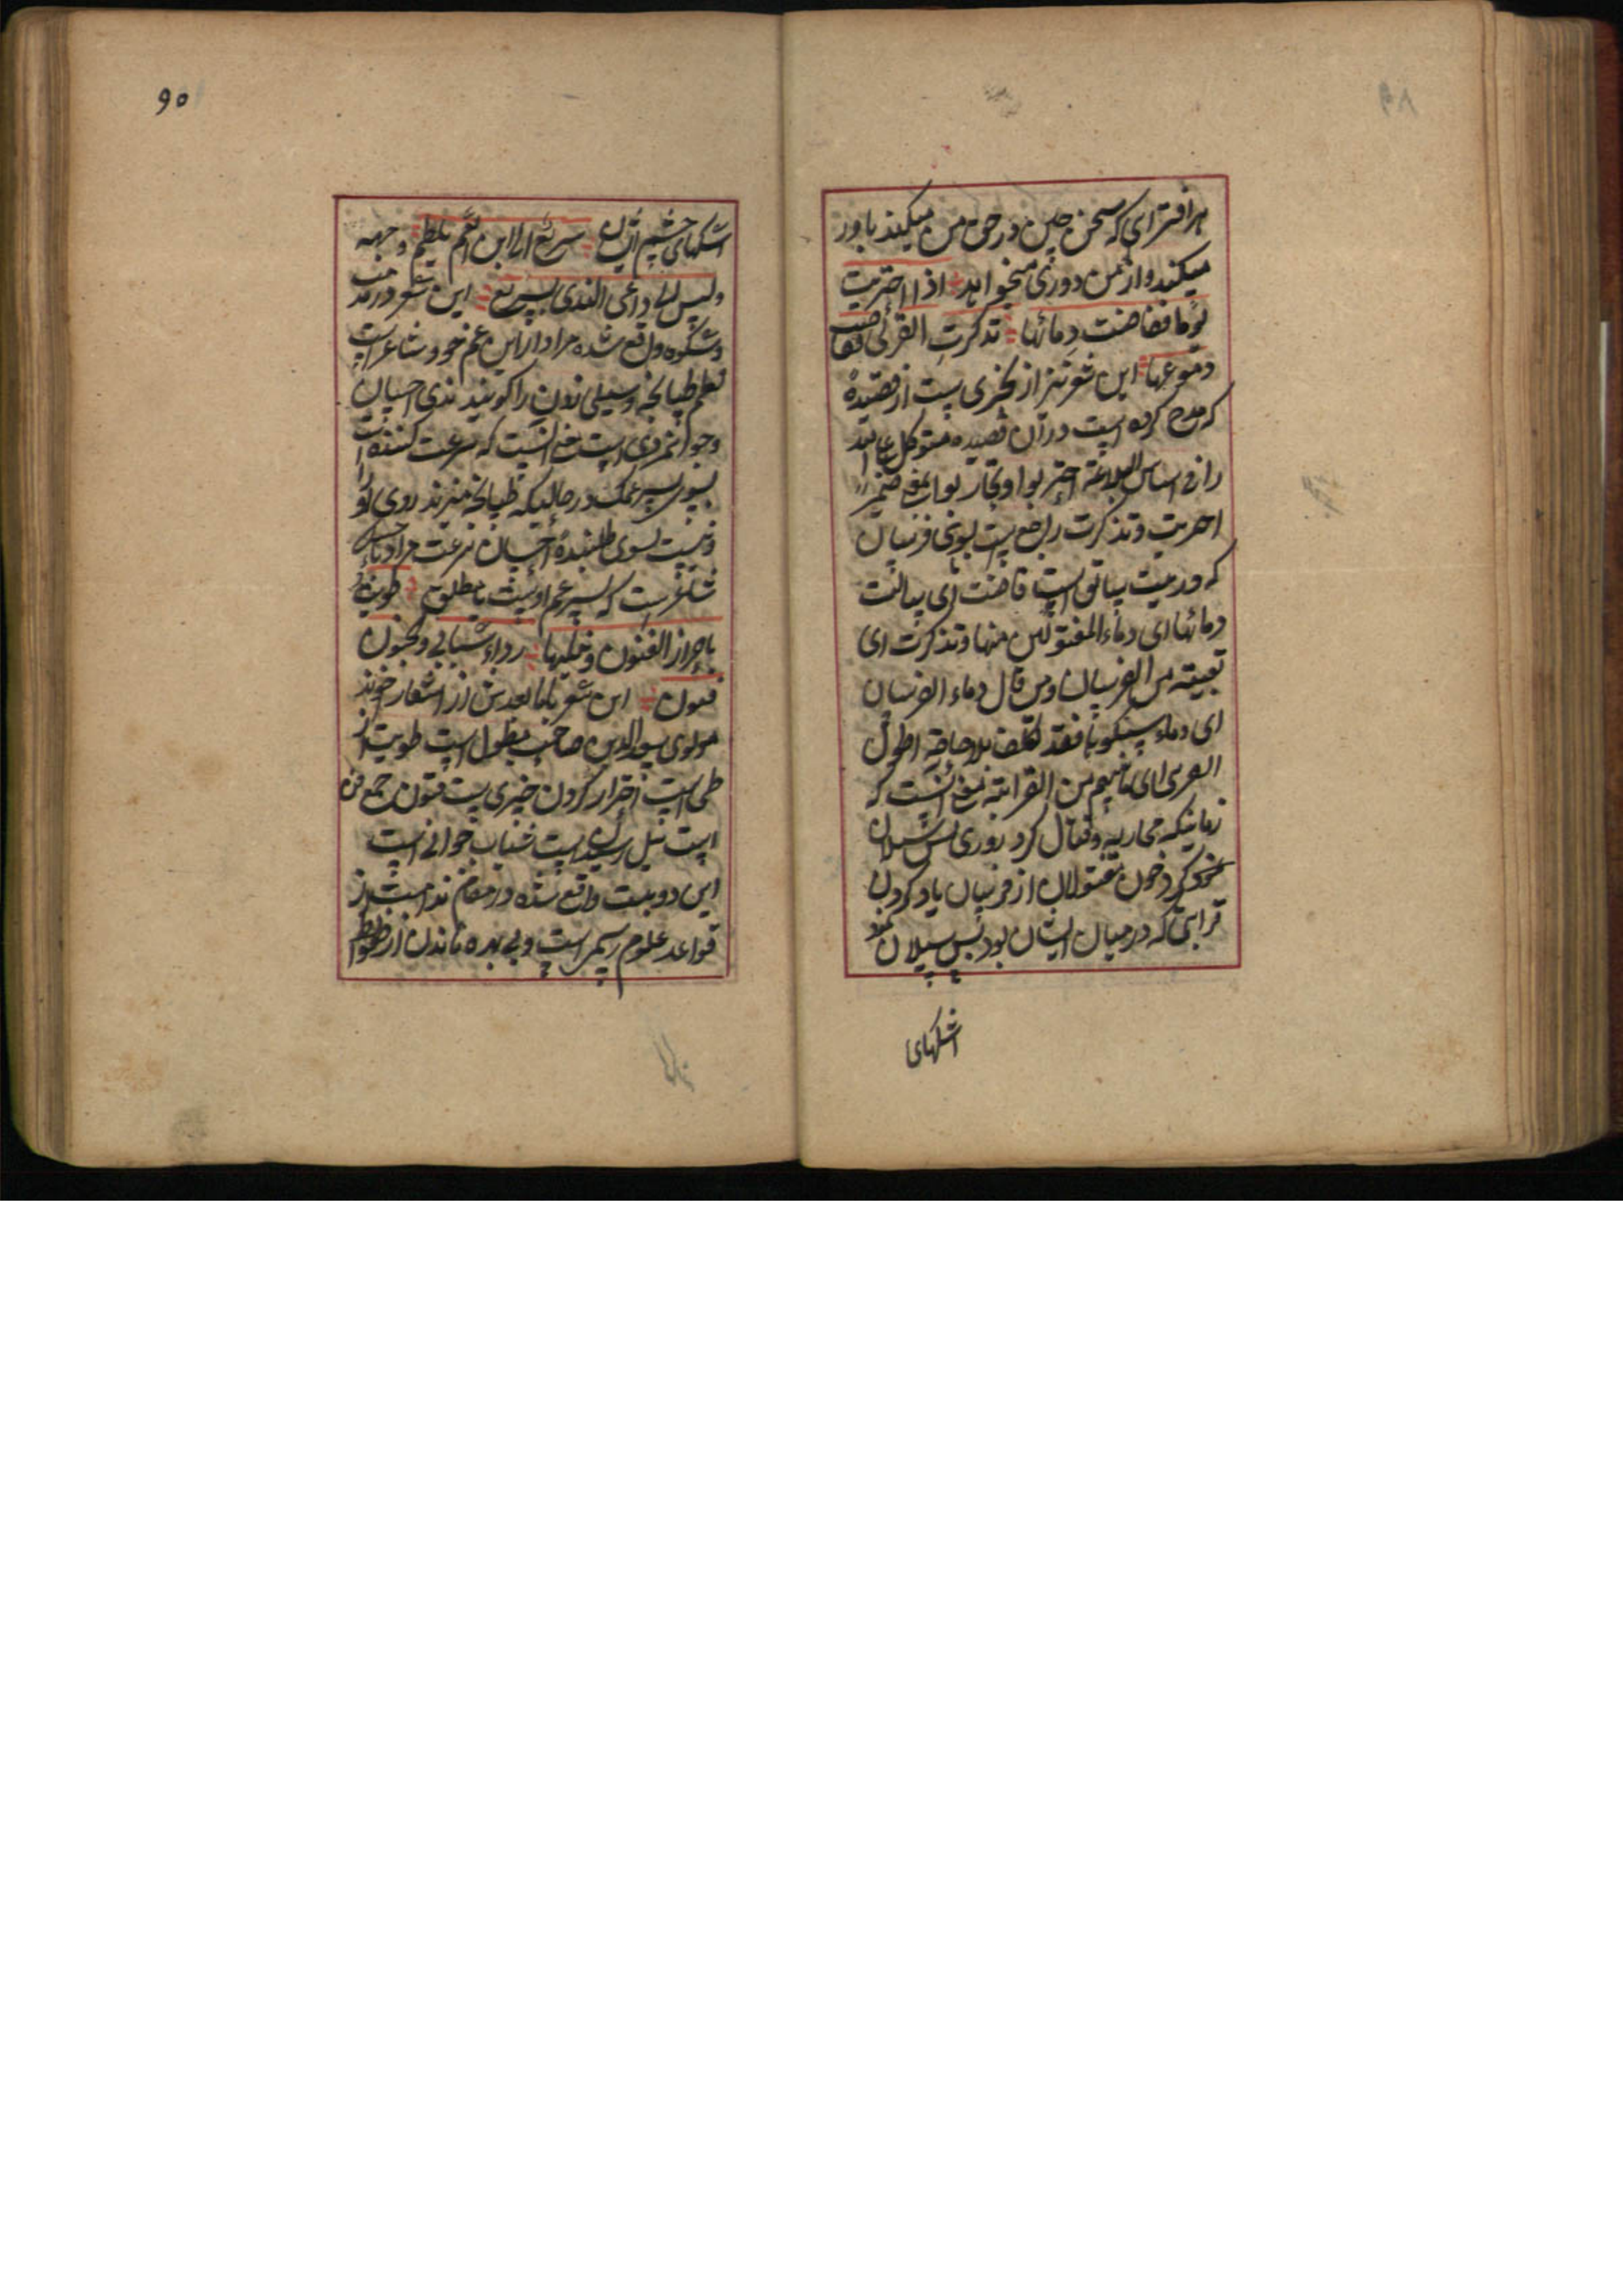 هر افترای که سخن چین در حق من میکند باور
میکند و از من دوری میخواهد اذا احتربت
یوما ففاضت دمائها تذکرت القربی ففاضت
دموعها این شعر نیز از بحتری است از قصیدهٔ
که مدح کرده است در آن قصیده متوکل علی الله
را فی اساس البلاغة احتربوا وتحاربوا بمعنی ضمیر
احتربت و تذکرت راجع است بسوی فرسان
که در بیت سابق است فاضت ای سالت
دمائها ای دماء المقتولین منها و تذکرت ای
من الفرسان ومن قال دماء الفرسان
ای دماء فقد تکلف بلا حاجة
القربی ای ما بینهم من القرابة معنی آنست که
زمانیکه محاربه و قتال کرد روزی پس سیلان
کرد خون مقتولان از فرسان یاد کردن
قرابتی که در میان ایشان بود پس سیلان نمود
اشکهای
۹۰
اشکهای چشم ایشان سریع الی ابن العم یلطم وجهه
ولیس الی داعی الندی بسریع این شعر در مذمت
و شکوه واقع شده مراد از ابن عم خود شاعر است
لطم طپانچه و سیلی زدن را گویند ندی احسان
و جوانمردی است معنی آنست که سرعت کننده است
بسوی پسر عمک در حالیکه طپانچه میزند روی او
و نیست بسوی طلبندهٔ احسان سرعت مراد
شاعر است که پسر عم اوست یا مطلق طویت
باحراز الفنون ونیلها رداء شبابی والجنون
فنون این شعر با ما بعدش از اشعار آخوند
مولوی سعد الدین صاحب مطول است طویت از
طی است احراز کردن چیزی است فنون جمع فن
است نیل رسیدن است شباب جوانی است
این دو بیت واقع شده در مقام ندامت از
قواعد علوم رسمی است و بی بهره ماندن از